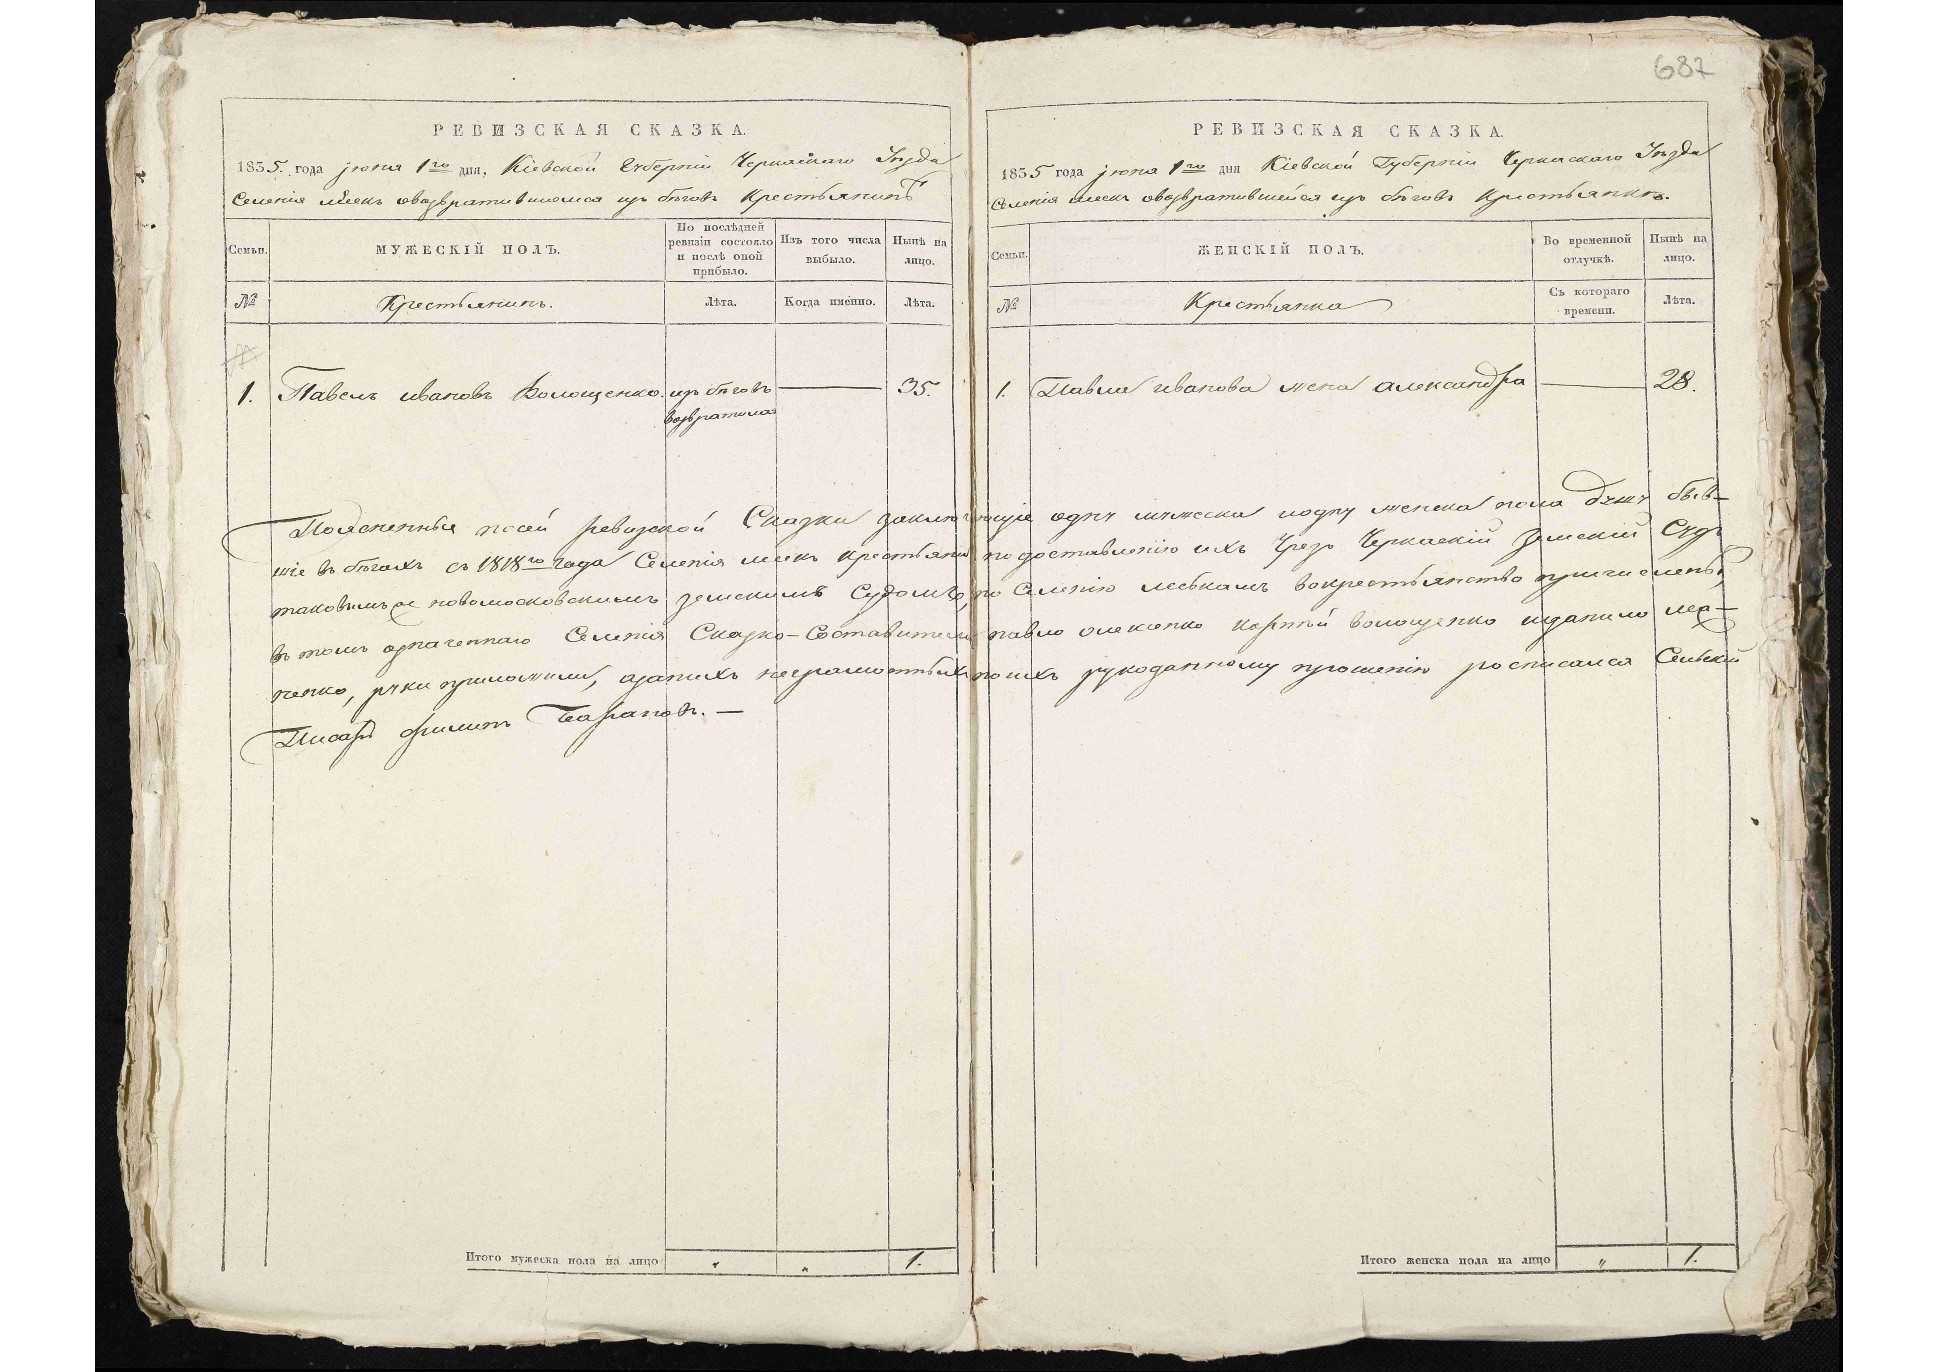 687
РЕВИЗСКАЯ СКАЗКА.
1835. года іюня 1го дня, Кіевской Губерніи Черкаскаго Уѣзда
Селенія млеекъ овозвратившемся изъ бѣговъ Крестьянинѣ
Семьи.
МУЖЕСКІЙ ПОЛЪ.
По послѣдней ревизіи состояло и послѣ оной прибыло.
Изъ того числа выбыло.
Нынѣ на лицо.
№
Крестьянинъ.
Лѣта.
Когда именно.
Лѣта.
1. Павелъ ивановъ Волощенко. изъ бѣговъ возвратился — 35.
РЕВИЗСКАЯ СКАЗКА.
1835 года іюня 1го дня Кіевской Губерніи Черкаскаго Уѣзда
Селенія млеекъ овозвратившейся изъ бѣговъ Крестьянкѣ.
Семьи.
ЖЕНСКІЙ ПОЛЪ.
Во временной отлучкѣ.
Нынѣ на лицо.
№
Крестьянка
Съ котораго времени.
Лѣта.
1. Павла иванова жена александра — 28.
Поясненные посей ревизской Сказки заключающіе одну мужеска иодну женска пола душу быв-
шіе въ бѣгахъ съ 1818го года Селенія млеекъ крестьяне по доставленію ихъ Чрезъ Черкаскій Земскій Судъ
новомосковскимъ земскимъ Судомъ, по Селенію млеекамъ вокрестьянство причислены,
въ томъ означеннаго Селенія Сказко-Составители павло олексенко Корнѣй волощенко иданило
ченко, руки приложили, азанихъ неграмотныхъ поихъ рукоданному прошенію росписался Сельскій
Писарь филипъ Барановъ. —
Итого мужеска пола на лицо " " 1.
Итого женска пола на лицо " 1.